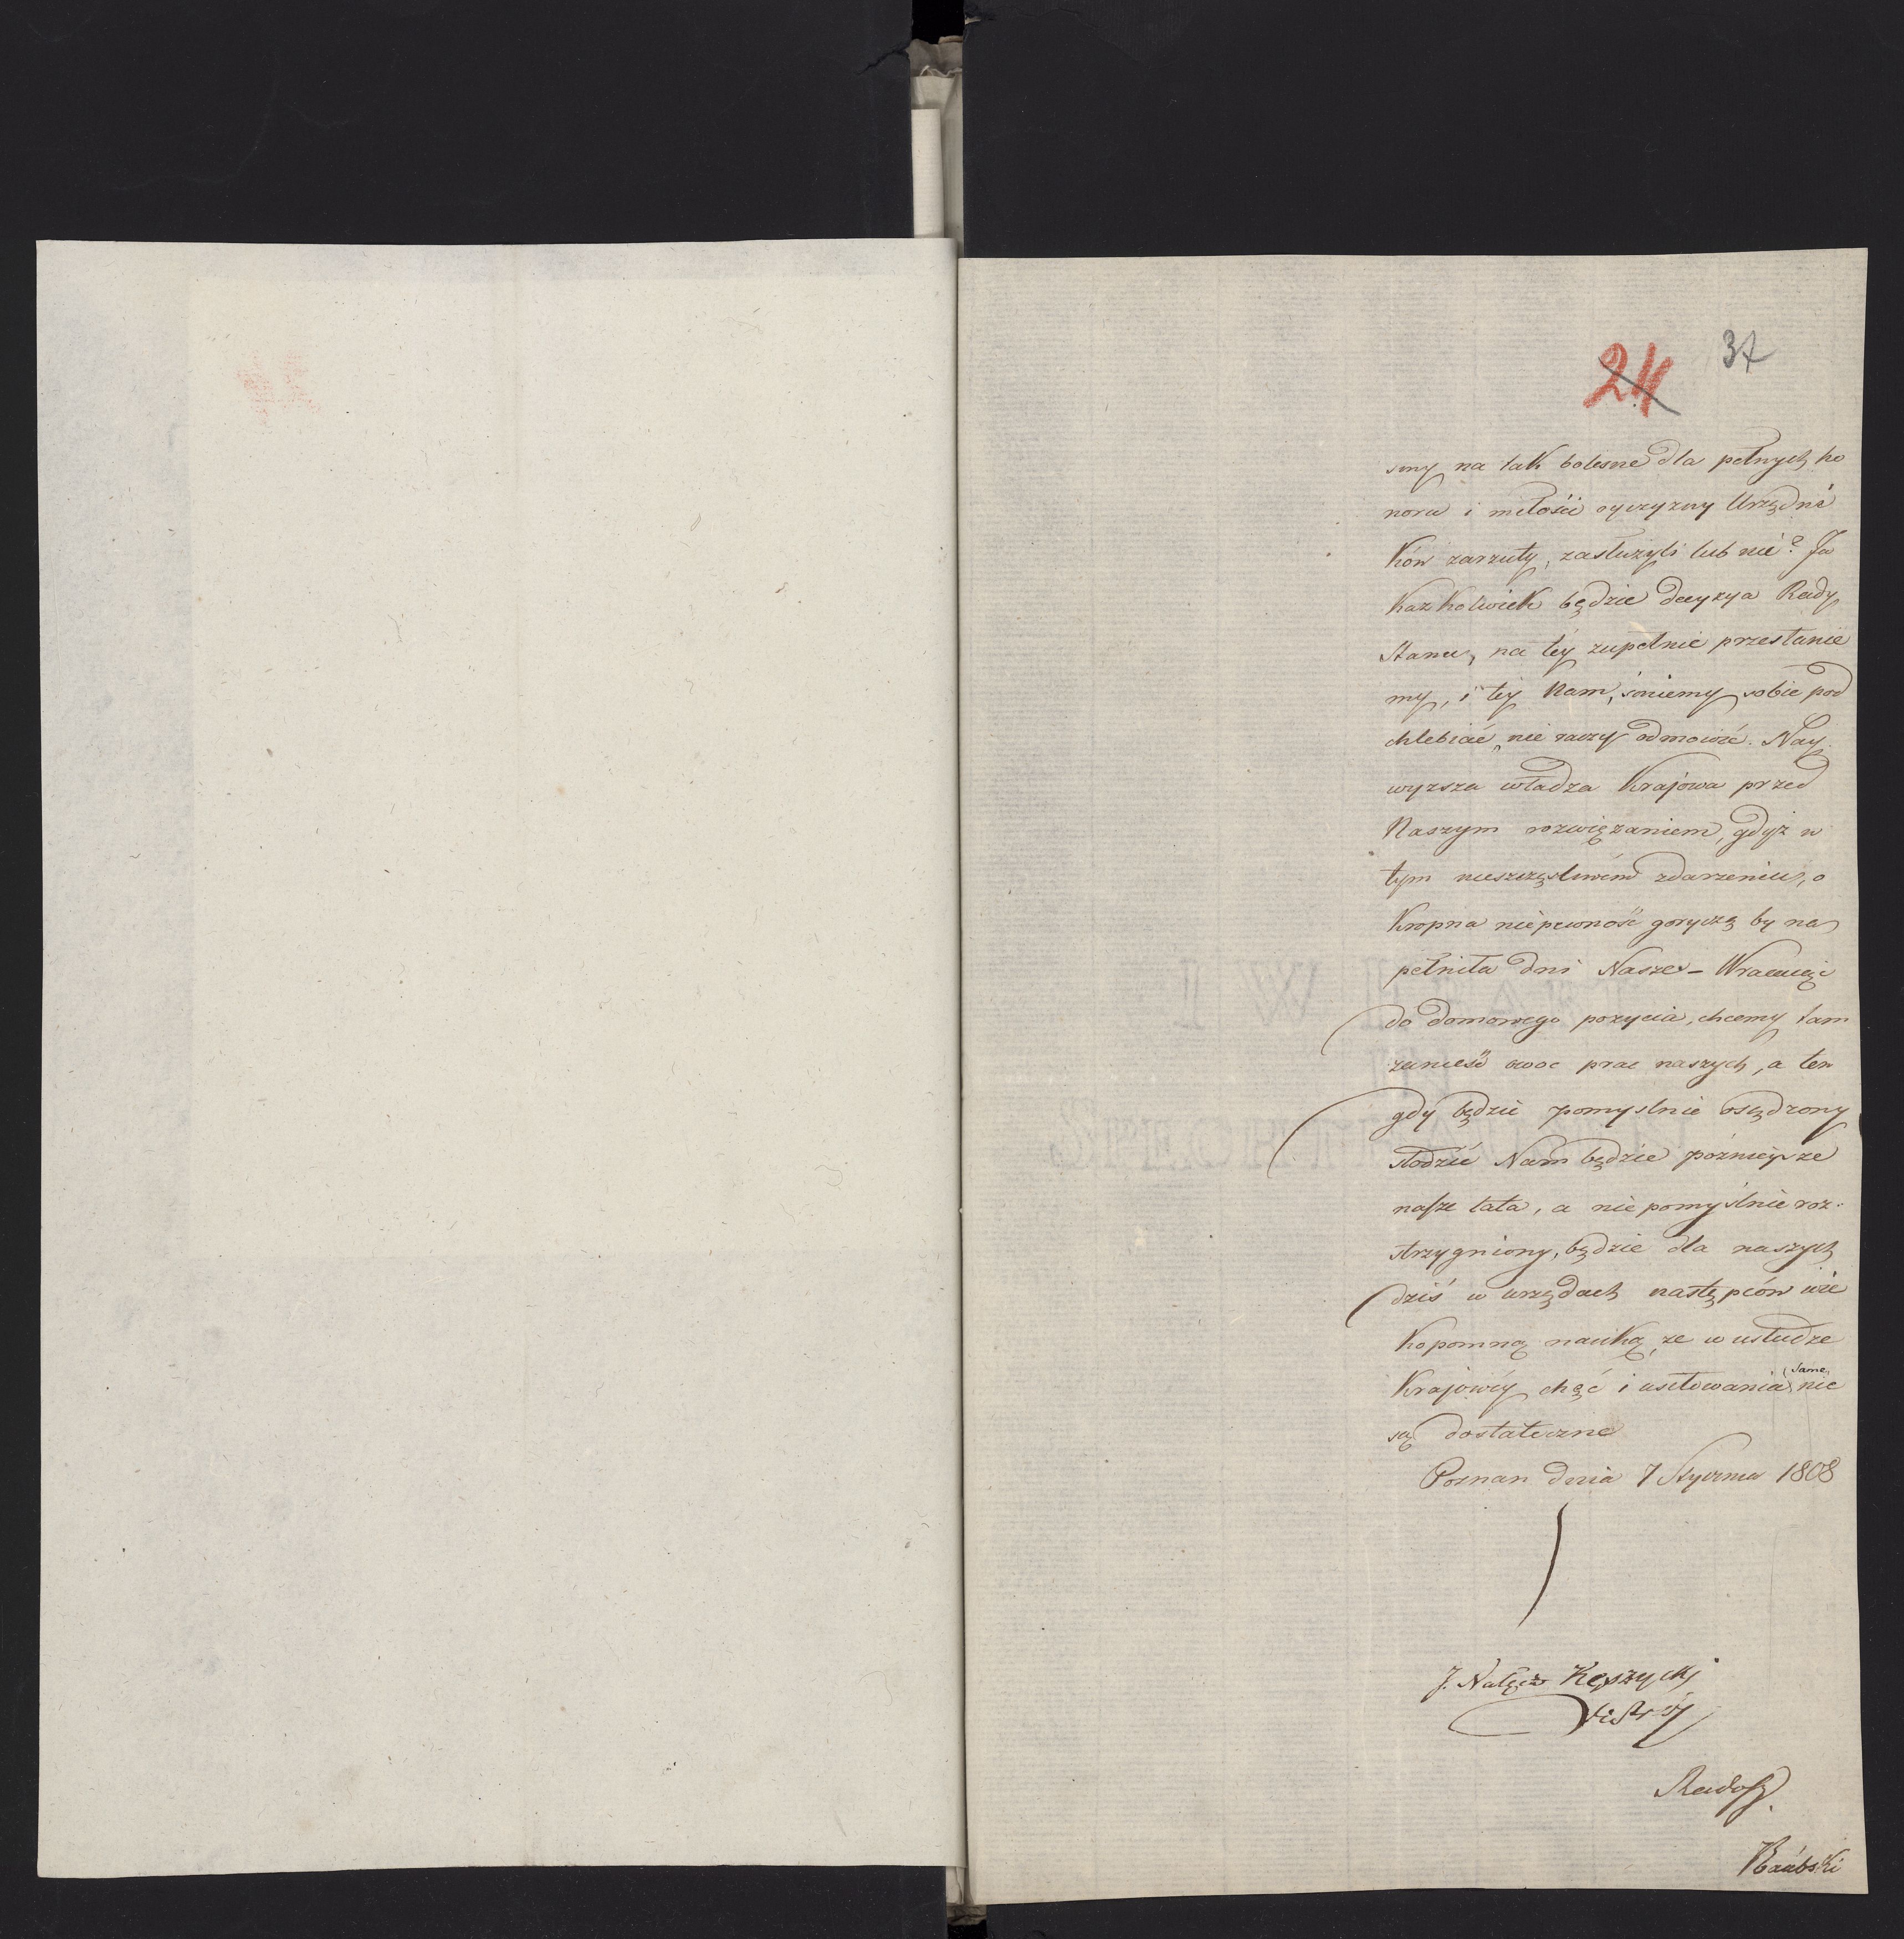 24 37
smy na tak bolesne dla pełnych ho
noru i miłości oyczyzny Urzędni
ków zarzuty, zasłużyli lub nie? Ja
kaz kolwiek będzie decyzya Rady
Stanu, na tey zupełnie przestanie
my, i tey Nam, śmiemy sobie pod
chlebiać, nie raczy odmowić. Nay
wyzsza władza Krajowa przed
Naszym rozwiązaniem, gdyż w
tym nieszczęśliwém zdarzeniu, o
kropna niepewność goryczą by na
pełniła dni Nasze – Wracaiąc
do domowego pożycia, chcemy tam
zanieść owoc prac naszych, a ten
gdy będzie pomyslnie osądzony
słodzić Nam będzie późnieysze
nasze lata, a nie pomyślnie roz-
strzygniony, będzie dla naszych
dziś w urzędach następców wie
kopomną nauką, ze w usłudze
Krajowéy chęć i usiłowania same nie
są dostateczne
Poznan dnia 7 Stycznia 1808
J. Nałęcz Kęszycki
Radosz.